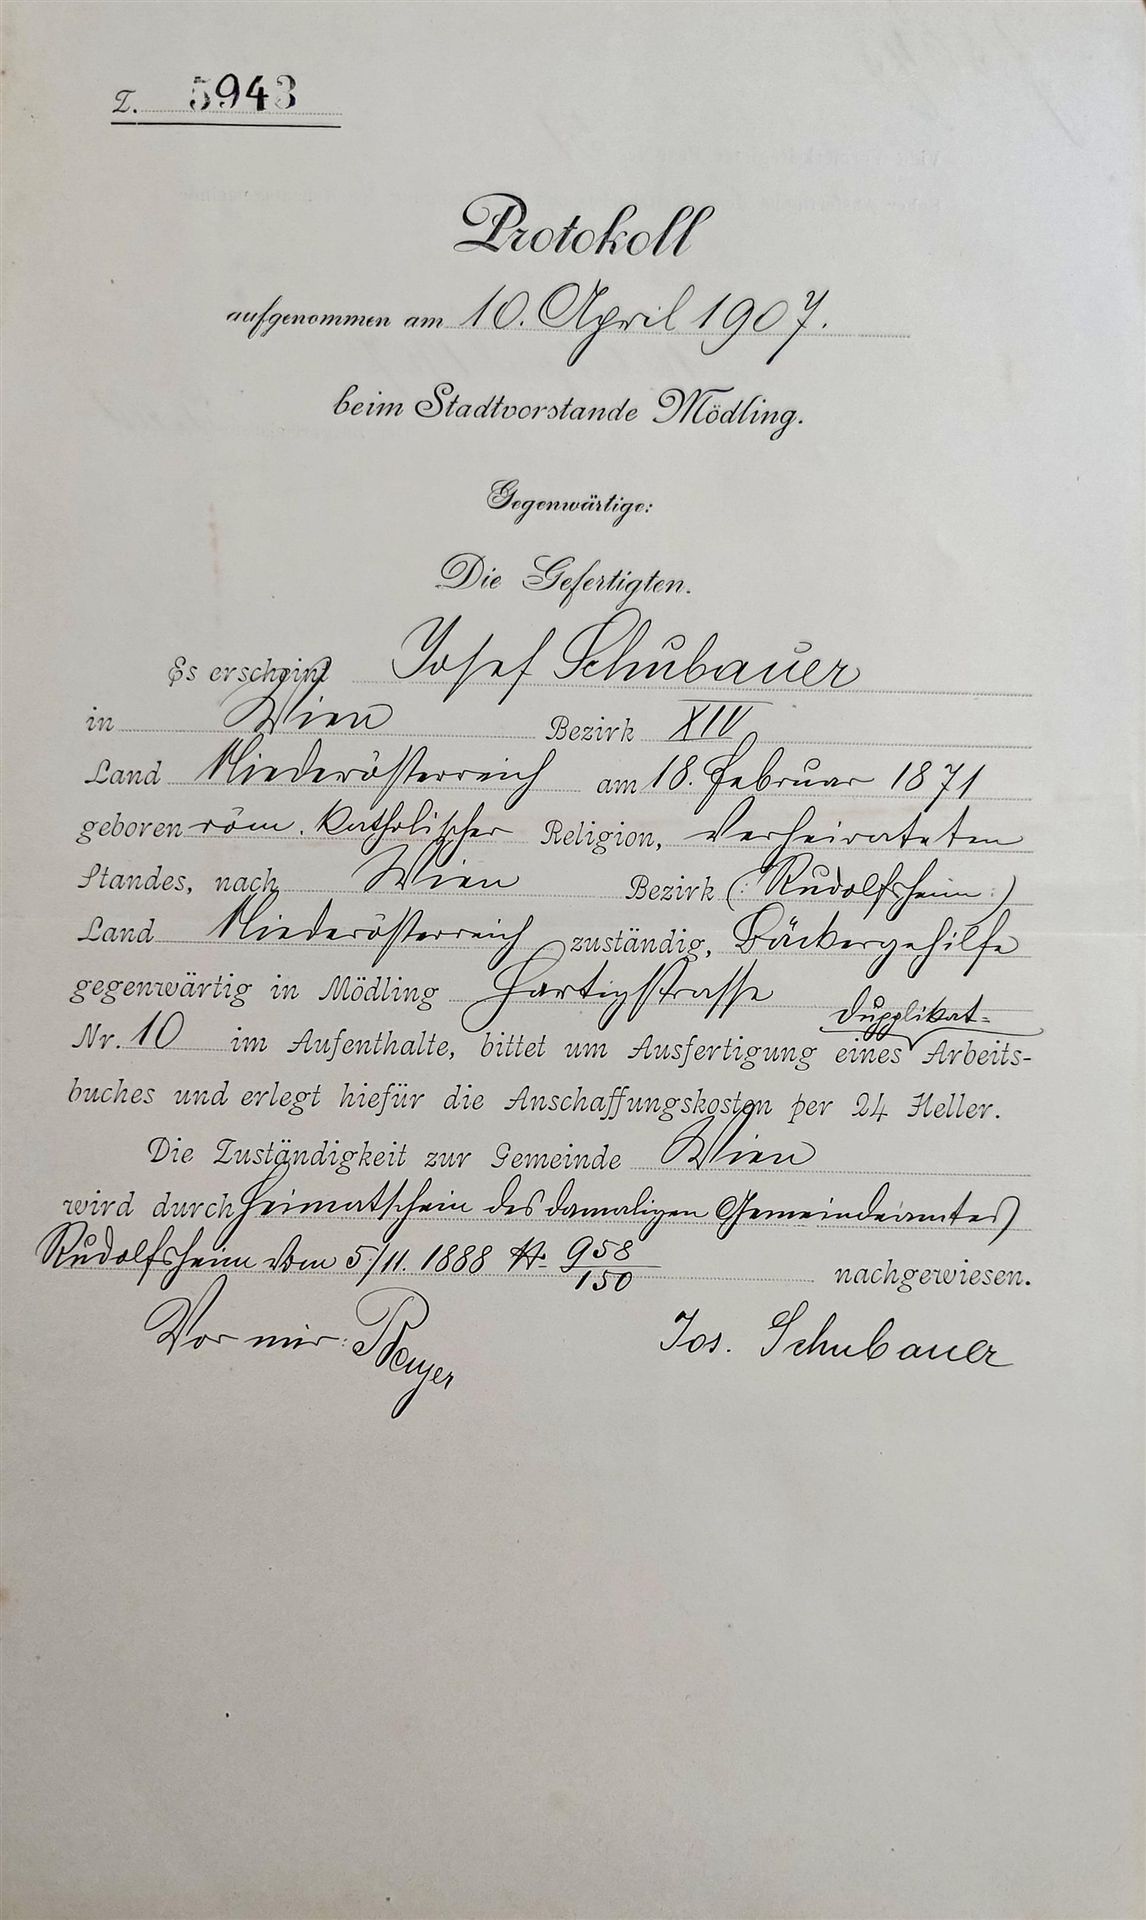 Z. 5943
Protokoll
aufgenommen am 10. April 1907.
beim Stadtvorstande Mödling.
Gegenwärtige:
Die Gefertigten.
Es erscheint Josef Schubauer
in Wien Bezirk XIV
Land Niederösterreich am 18. Februar 1871
geboren röm. katholischer Religion, verheirateten
Standes, nach Wien Bezirk (: Rudolfsheim :)
Land Niederösterreich zuständig, Bäckergehilfe
gegenwärtig in Mödling Hartigstrasse
Dupplikat-
Nr. 10 im Aufenthalte, bittet um Ausfertigung eines Arbeits-
buches und erlegt hiefür die Anschaffungskosten per 24 Heller.
Die Zuständigkeit zur Gemeinde Wien
wird durch Heimatschein des damaligen Gemeindeamtes
Rudolfsheim vom 5./11. 1888 N. 958/150 nachgewiesen.
Vor mir: Jos. Schubauer